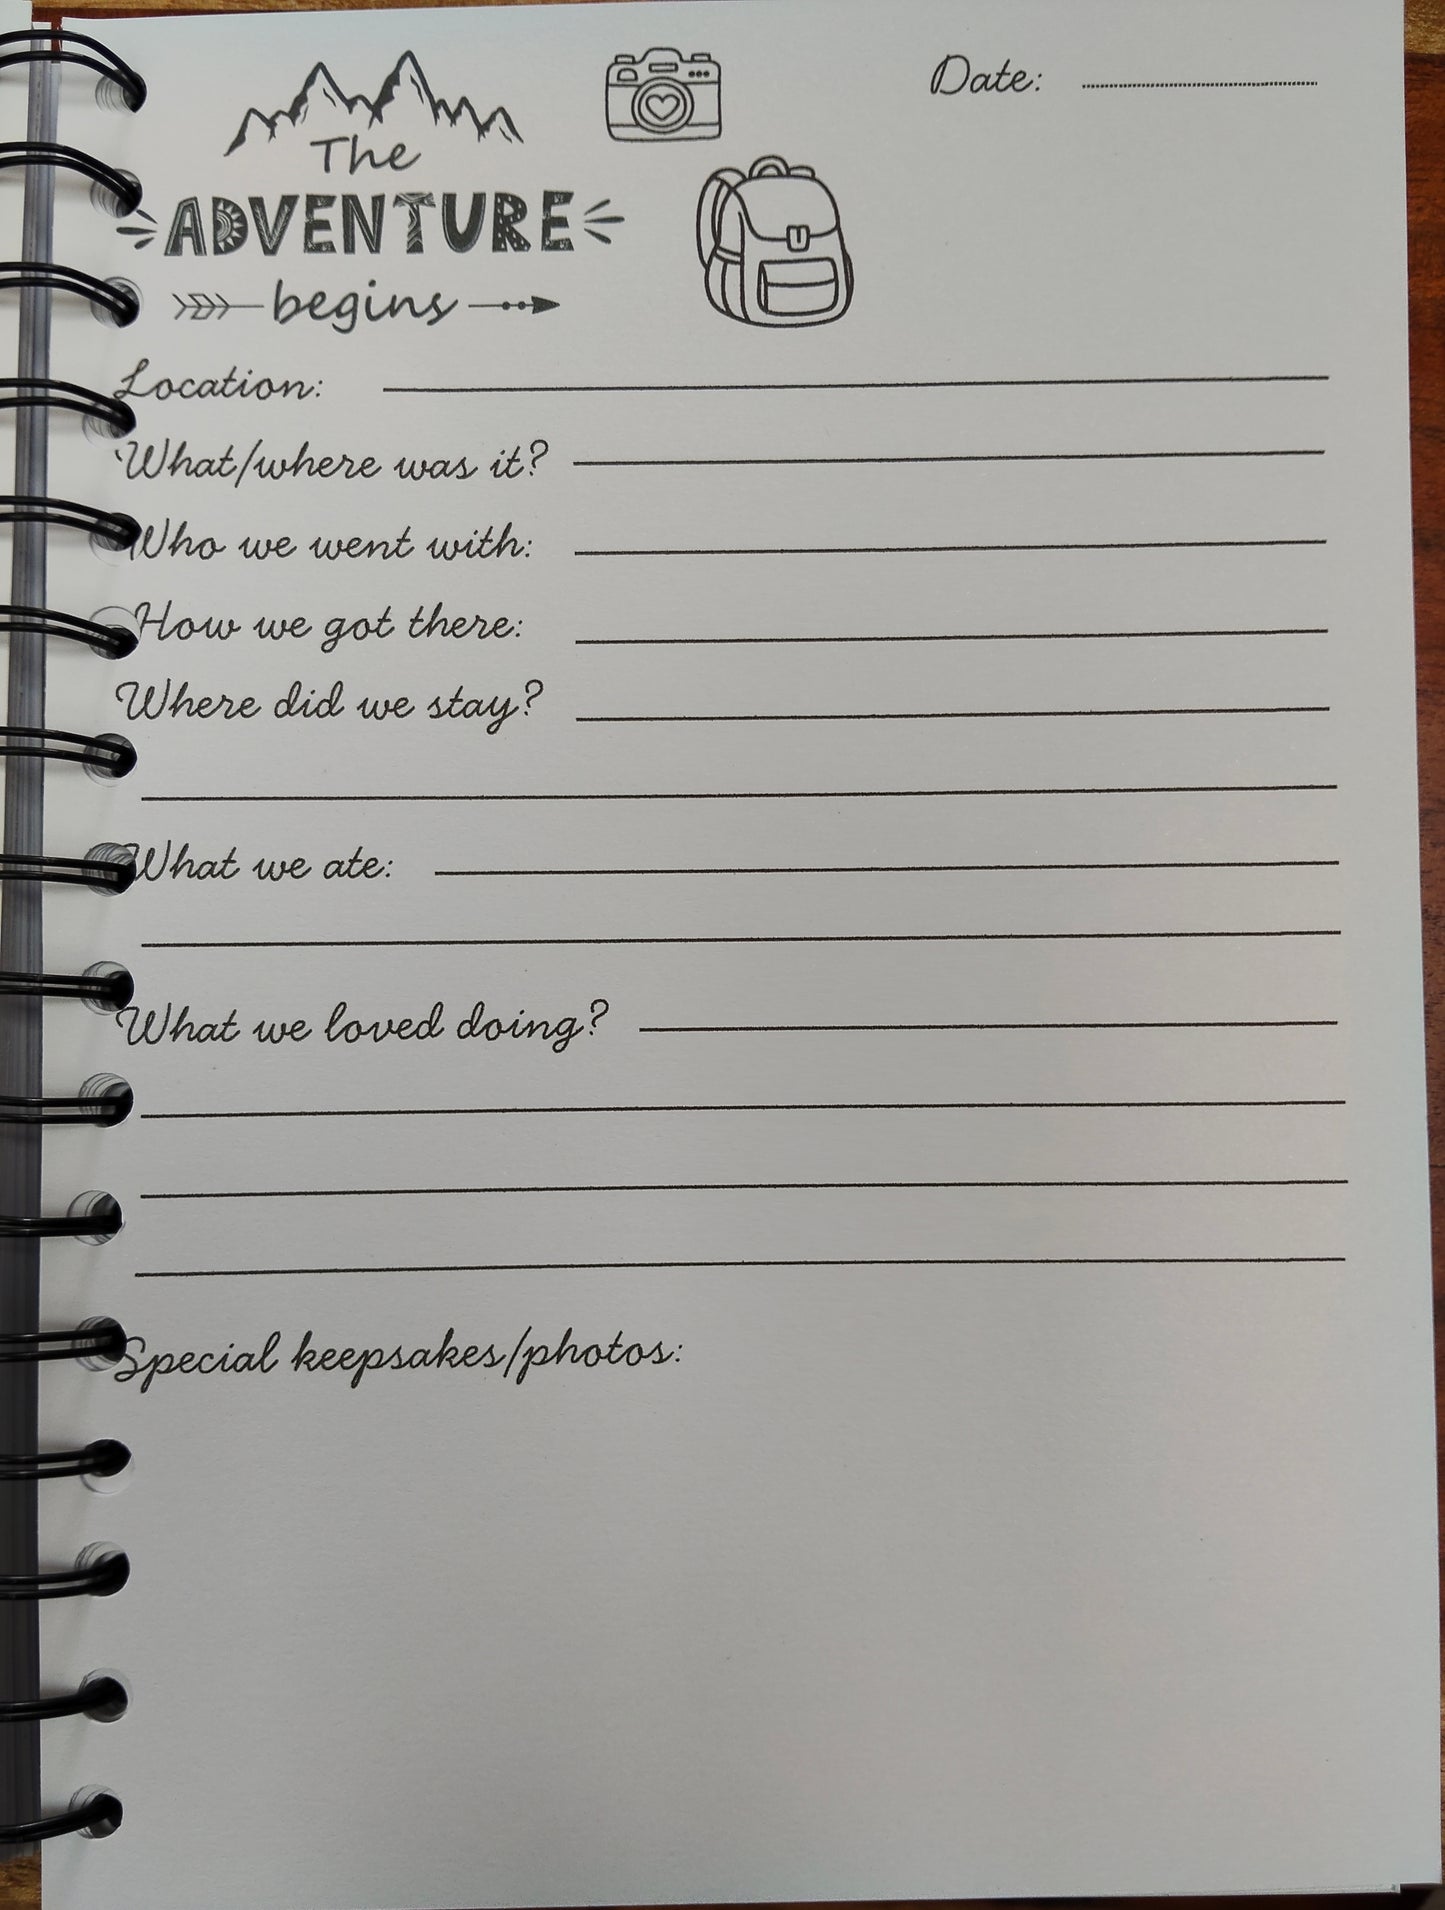 The
ADVENTURE
begins
Date:
Location:
What/where was it?
Who we went with:
How we got there:
Where did we stay?
What we ate:
What we loved doing?
Special keepsakes/photos: